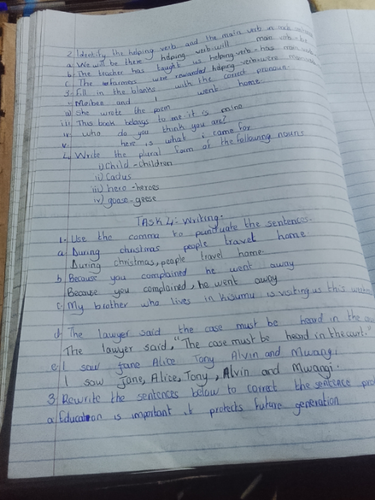 2. Identify the helping verb and the main verb in each
a. We will be there helping verb-will main verb-
b. The teacher has taught us helping verb-has main verb
c. The were rewarded helping verb-were main
3. Fill in the blanks with the correct pronoun
i. Mother and I went home.
ii) She wrote the poem
iii. This book belongs to me it is mine
iv. Who do you think you are?
v. here is what I came for
4. Write the plural form of the following nouns
i) Child - children
ii) Cactus
iii) hero - heroes
iv) goose - geese
TASK 4: Writing.
1. Use the comma to punctuate the sentences.
a. During christmas people travel home
During christmas, people travel home.
b. Because you complained he went away
Because you complained, he went away
c. My brother who lives in Kisumu is visiting us this
d. The lawyer said the case must be heard in the
The lawyer said, "The case must be heard in the court."
e. I saw Jane Alice Tony Alvin and Mwangi.
I saw Jane, Alice, Tony, Alvin and Mwangi.
3. Rewrite the sentences below to correct the sentence
a. Education is important it protects future generation